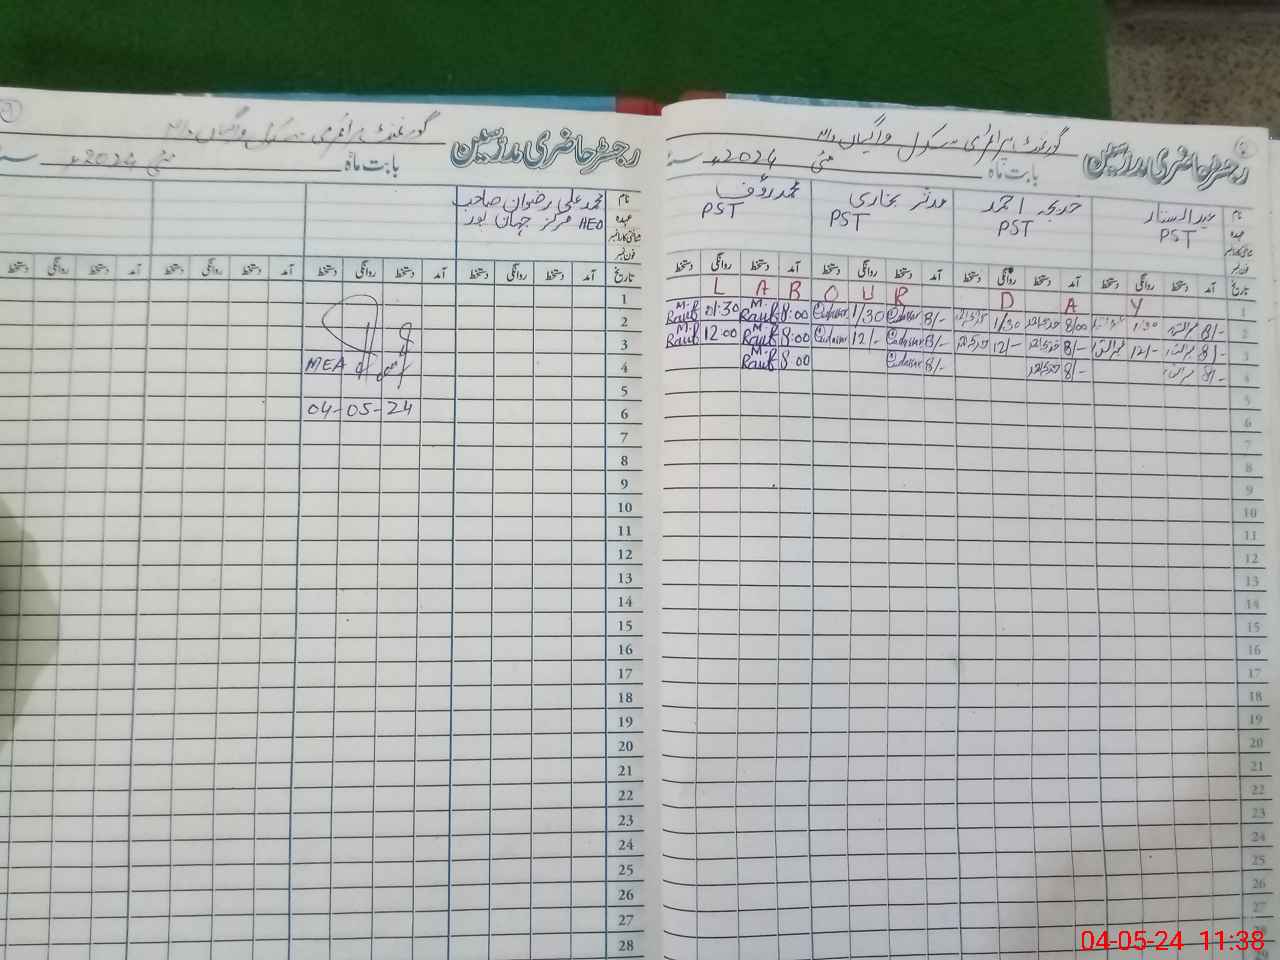 رجسٹر حاضری مدرسین
گورنمنٹ پرائمری سکول
بابت ماہ مئی 2024ء
نام
عہدہ
تاریخ
عبدالستار
PST
خدیجہ احمد
PST
مدثر بخاری
PST
محمد رؤف
PST
آمد دستخط روانگی دستخط آمد دستخط روانگی دستخط آمد دستخط روانگی دستخط آمد دستخط روانگی دستخط
1 L A B O U R D A Y
2 8/- 1/30 8/00 1/30 8/- 1/30 8:00 M. Rauf 01:30 M. Rauf
3 8/- 12/- 8/- 12/- 8/- 12/- 8:00 M. Rauf 12:00 M. Rauf
4 8/- 8/- 8/- 8:00 M. Rauf
5
6
7
8
9
10
11
12
13
14
15
16
17
18
19
20
21
22
23
24
25
26
27
28
29
رجسٹر حاضری مدرسین
گورنمنٹ پرائمری سکول
بابت ماہ مئی 2024ء
نام
عہدہ
محمد علی رضوان صاحب
AEO مرکز جہان پور
تاریخ آمد دستخط روانگی دستخط آمد دستخط روانگی دستخط آمد دستخط روانگی دستخط آمد دستخط روانگی دستخط
1
2
3
4 MEA
5
6 04-05-24
7
8
9
10
11
12
13
14
15
16
17
18
19
20
21
22
23
24
25
26
27
28
04-05-24 11:38